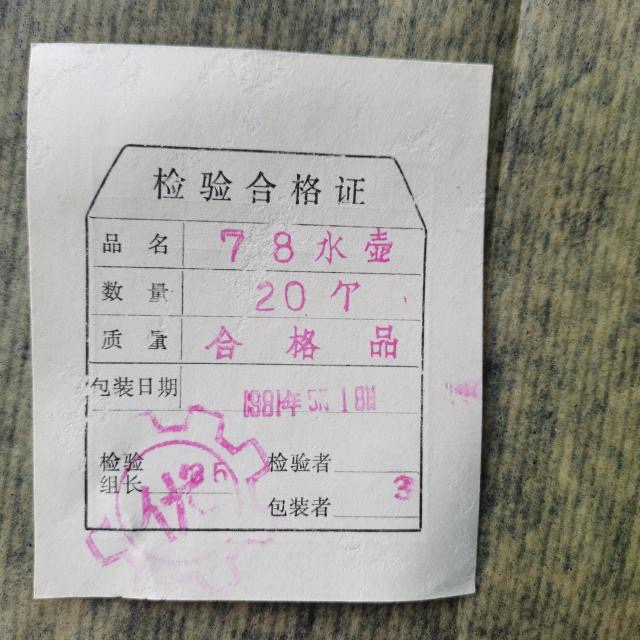 检验合格证
品名 78水壶
数量 20个
质量 合格品
包装日期 1981年5月18日
检验组长
检验者
包装者 3